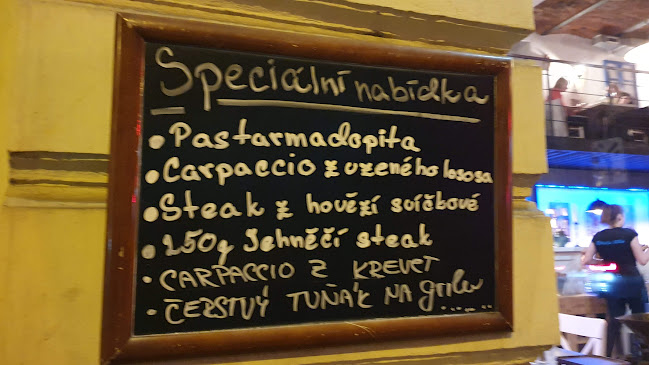 Speciální nabídka
• Pastarmadopita
• Carpaccio z uzeného lososa
• Steak z hovězí svíčkové
• 250g Jehněčí steak
• CARPACCIO Z KREVET
• ČERSTVÝ TUŇÁK NA grilu .....